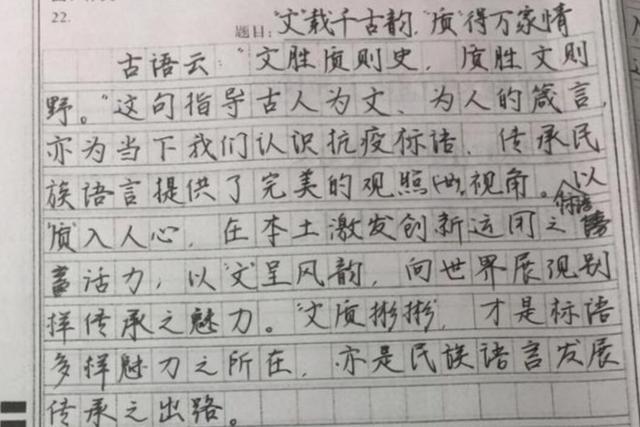 22.
题目:"文"载千古韵,"质"得万家情
古语云:"文胜质则史,质胜文则
野。"这句指导古人为文、为人的箴言,
亦为当下我们认识抗疫标语、传承民
族语言提供了完美的观照视角。以
"质"入人心,在本土激发创新运用之标语
活力,以"文"呈风韵,向世界展现别
样传承之魅力。"文质彬彬",才是标语
多样魅力之所在,亦是民族语言发展
传承之出路。